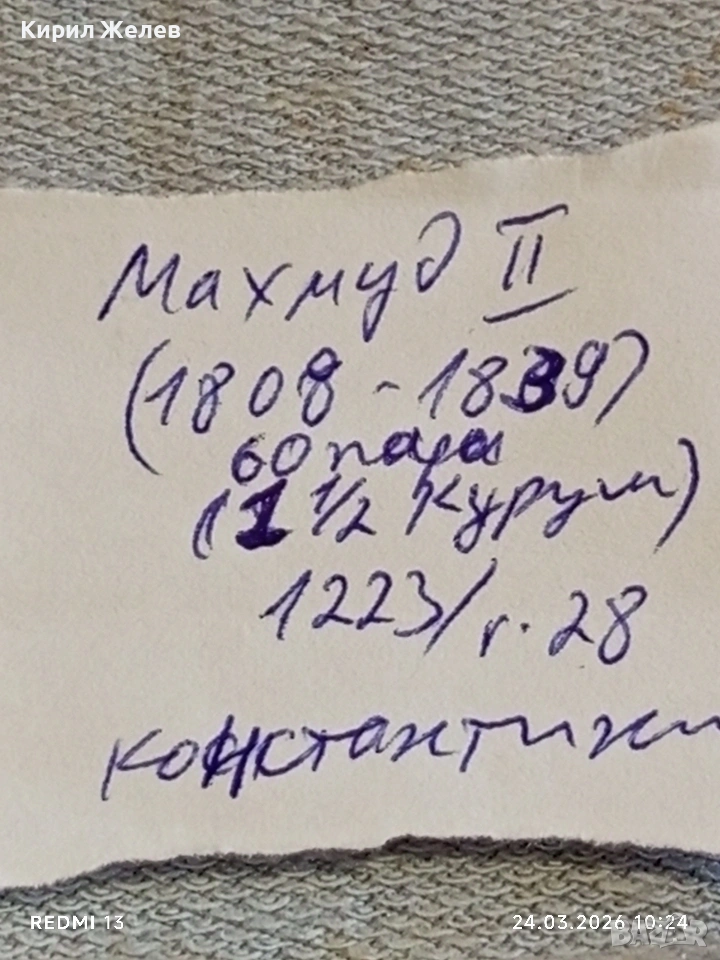 Кирил Желев
Махмуд II
(1808 - 1839)
60 пара
(1 1/2 Куруш)
1223/г. 28
Константин
REDMI 13
24.03.2026 10:24
BAZAR